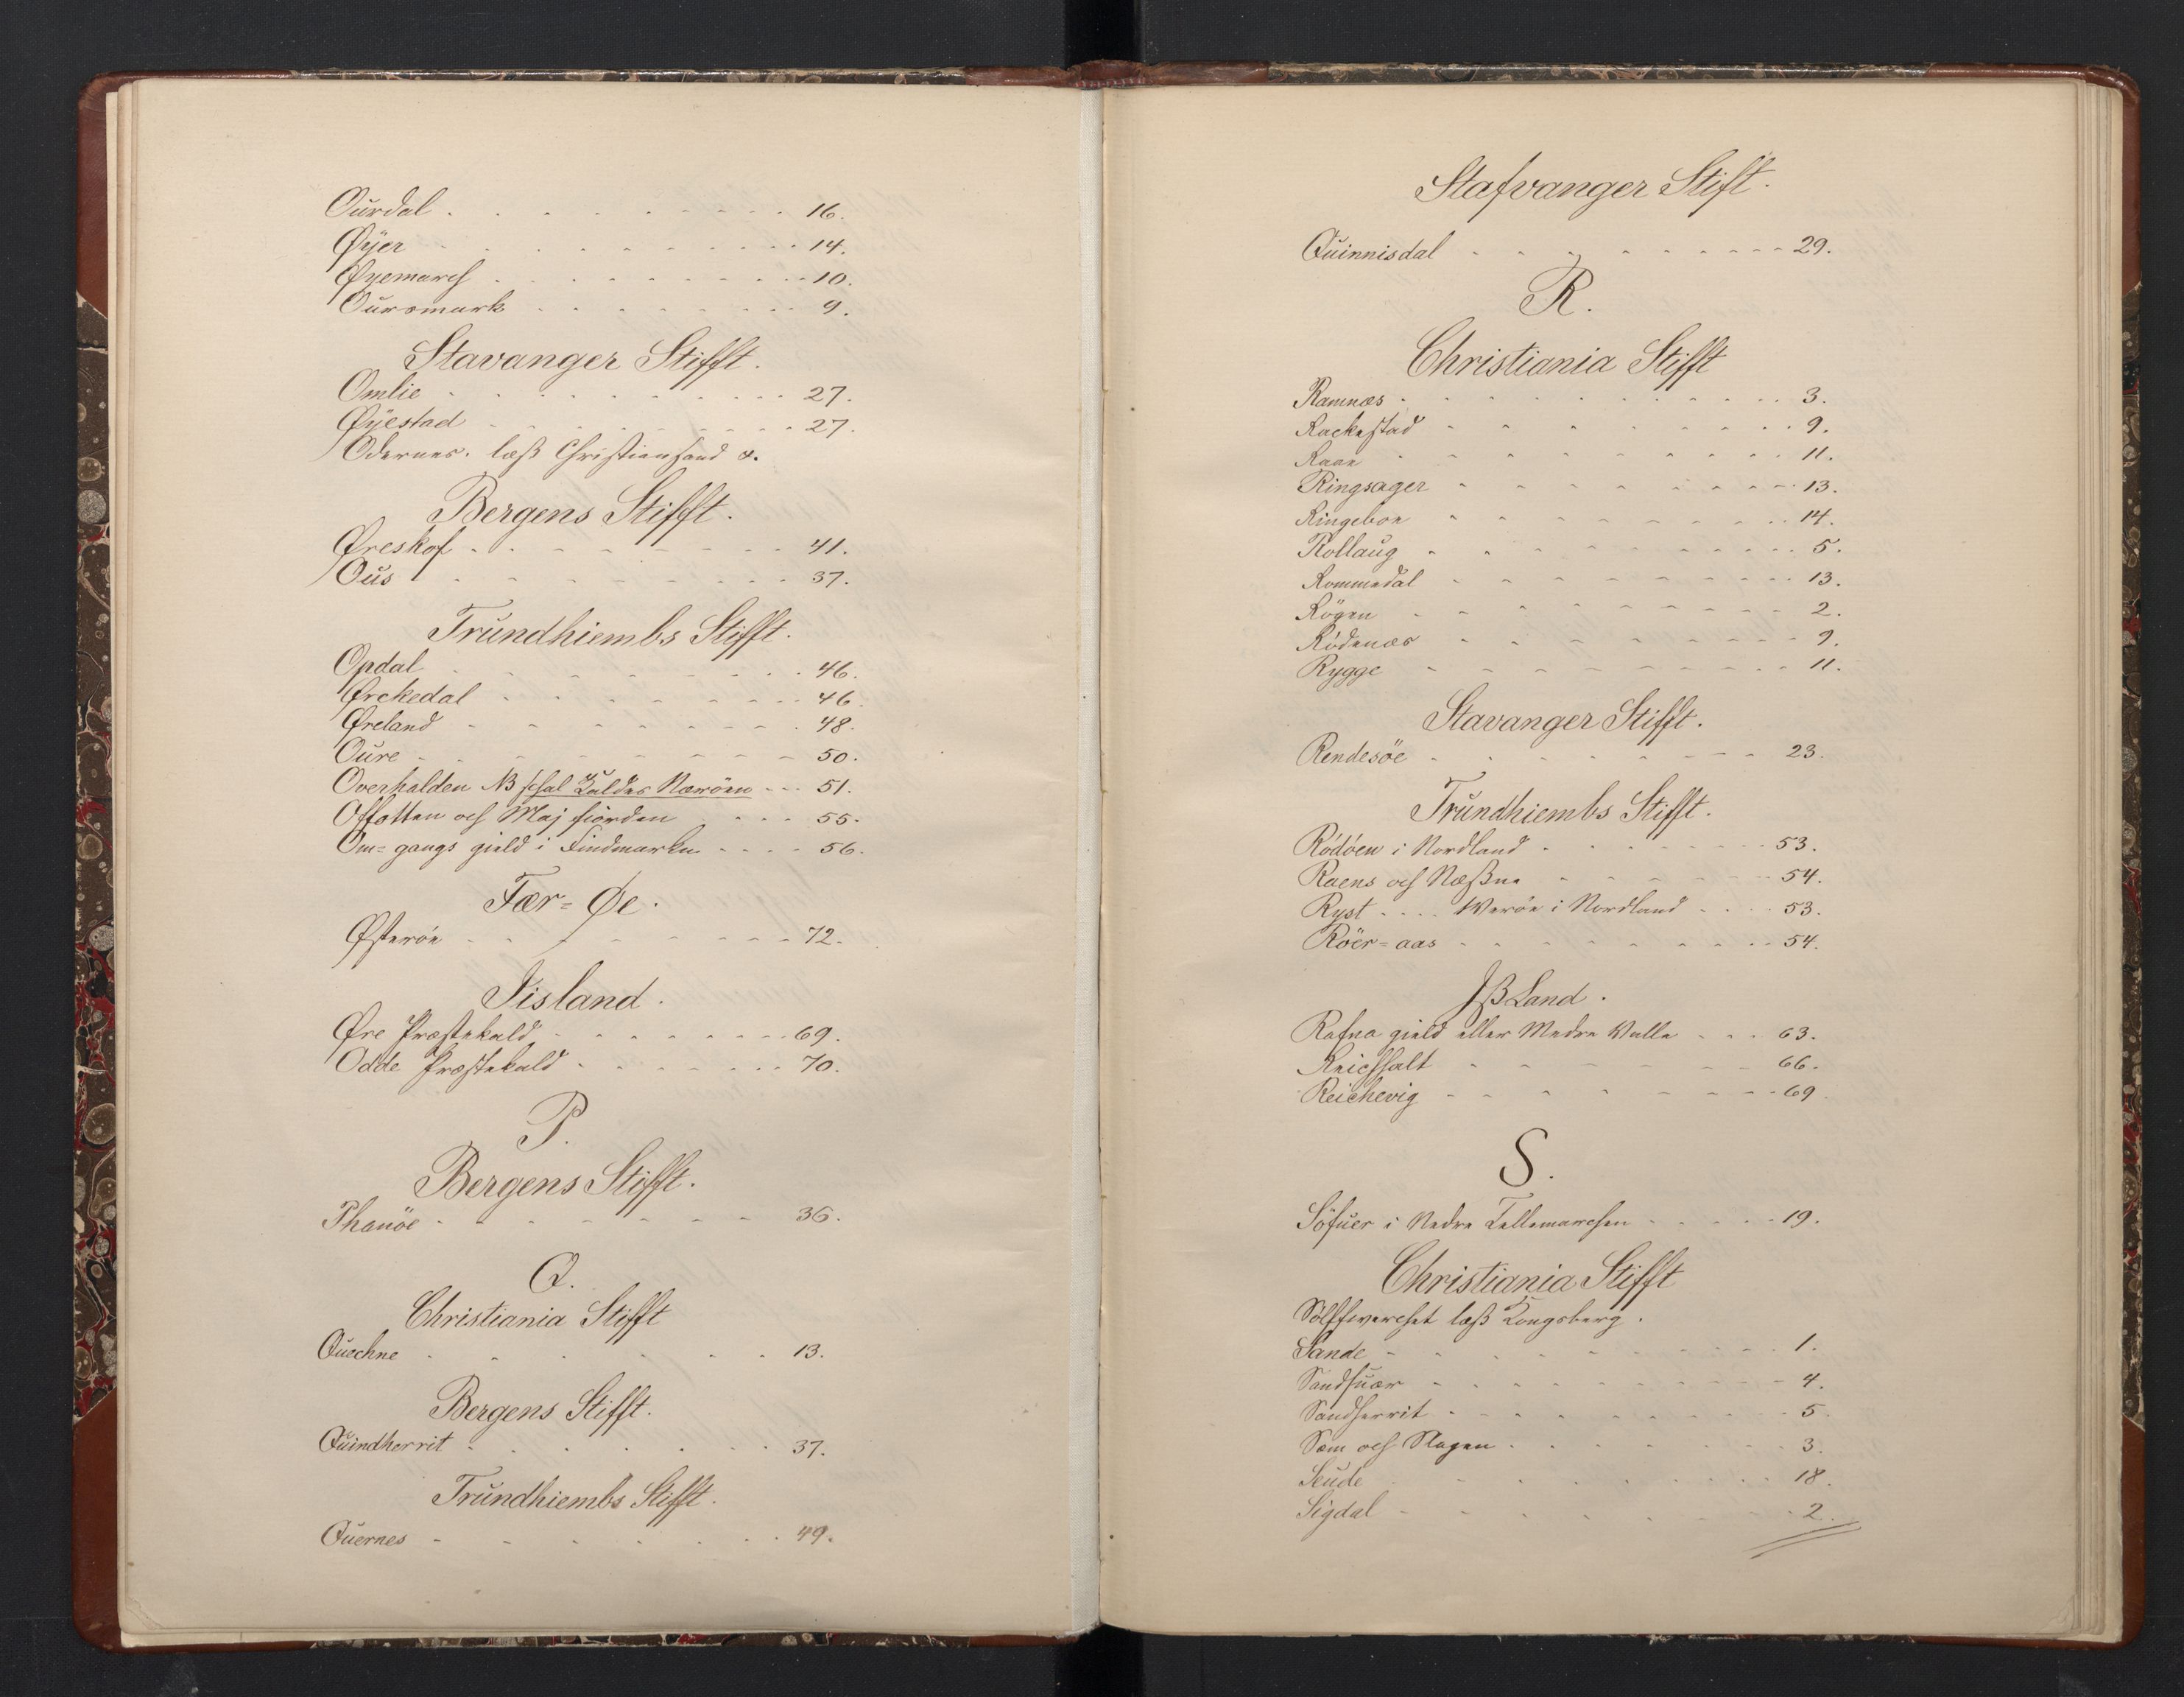 Ourdal . . . . . . . . . . 16.
Øÿer . . . . . . . . . . 14.
Øyemarch . . . . . . . . . . 10.
Oursmark . . . . . . . . 9.
Stavanger Stifft.
Omlie . . . . . . . . . . 27.
Øÿestad . . . . . . . . . 27.
Odernes. læß Christiansand &.
Bergens Stifft.
Øreskof . . . . . . . . . 41.
Ous . . . . . . . . . 37.
Trundhiembs Stifft.
Opdal . . . . . . . . . 46.
Ørckedal . . . . . . . . 46.
Øreland . . . . . . . . . 48.
Oure . . . . . . . . . . 50.
Overhalden NB schal Kaldes Næröen - - - 51.
Offotten och Maj fiörden . . . . 55.
Om= gangs gield i Findmarken . . . . 56.
Fær= Øe.
Østeröe . . . . . . . . . 72.
Jisland.
Øre Præstekald . . . . . . . . 69.
Odde Præstekald . . . . . . . 70.
P.
Bergens Stifft.
Phanöe . . . . . . . 36.
Q.
Christiania Stifft
Quechne . . . . . . . 13.
Bergens Stifft.
Quindherrit . . . . . . . 37.
Trundhiembs Stifft.
Quernes . . . . . . . 49.
Stafvanger Stift.
Quinnisdal . . . . . . . . . 29.
R.
Christiania Stifft
Ramnæs . . . . . . . . . . 3.
Rackestad . . . . . . . . 9.
Raae . . . . . . . . . . 11.
Ringsager . . . . . . . . 13.
Ringeboe . . . . . . . . . 14.
Rollaug . . . . . . . . . 5.
Rommedal . . . . . . . . . 13.
Rögen . . . . . . . . . . 2.
Rödenæs . . . . . . . . . 9.
Rygge . . . . . . . . . . 11.
Stavanger Stifft.
Rendesöe . . . . . . . . . 23.
Trundhiembs Stifft.
Rödöen i Nordland . . . . . . . . 53.
Raens och Næßne . . . . . . . 54.
Ryst . . . . Weröe i Nordland . . . . 53.
Röer=aas . . . . . . . . . 54.
JßLand.
Rafna gield eller Medre Valle . . . 63.
Reichholt . . . . . . . 66.
Reichevig . . . . . . . . 69.
S.
Söfuer i Nedre Tellemarchen . . . . . 19.
Christiania Stifft
Sölffwerchet læß Kongsberg.
Sande . . . . . . . . . . 1.
Sandsuær . . . . . . . . . 4.
Sandherrit . . . . . . . . . 5.
Sem och Slagen . . . . . . . 3.
Seude . . . . . . . . 18.
Sigdal . . . . . . . . . 2.